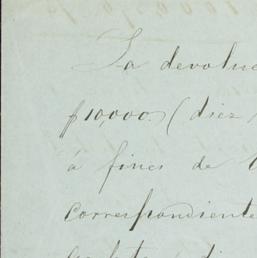 La devoluc
$10,000. (diez
á fines de
correspondiente